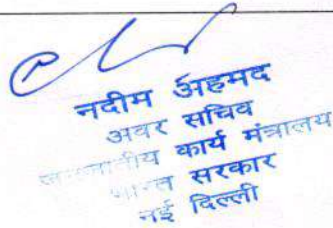 नदीम अहमद
अवर सचिव
कार्य मंत्रालय
भारत सरकार
नई दिल्ली